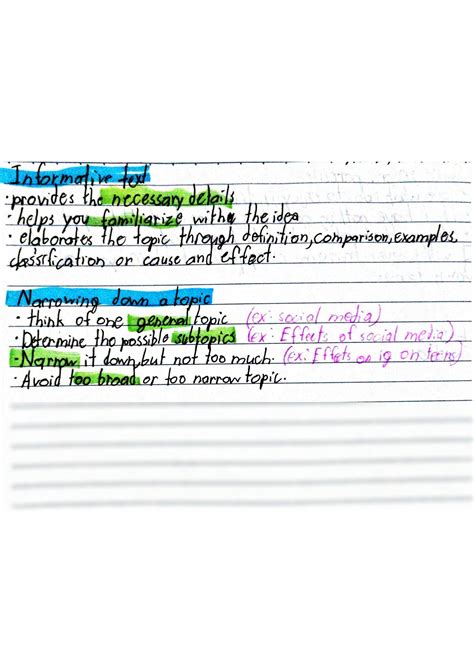 Informative text
• provides the necessary details
• helps you familiarize with the idea
• elaborates the topic through definition, comparison, examples,
classification or cause and effect.
Narrowing down a topic
• think of one general topic (ex: social media)
• Determine the possible subtopics (ex: Effects of social media)
• Narrow it down, but not too much. (ex: Effets on ig on teens)
• Avoid too broad or too narrow topic.